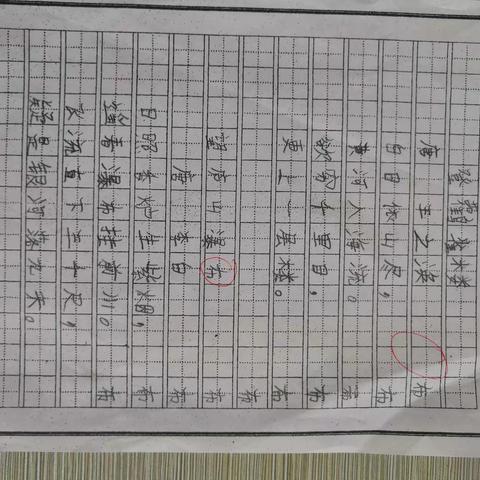 登鹳雀楼
唐 王之涣 布
白日依山尽, 布
黄河入海流。 布
欲穷千里目, 布
更上一层楼。 布
布
望庐山瀑布 布
唐 李白 布
日照香炉生紫烟, 布
遥看瀑布挂前川。 布
飞流直下三千尺,
疑是银河落九天。